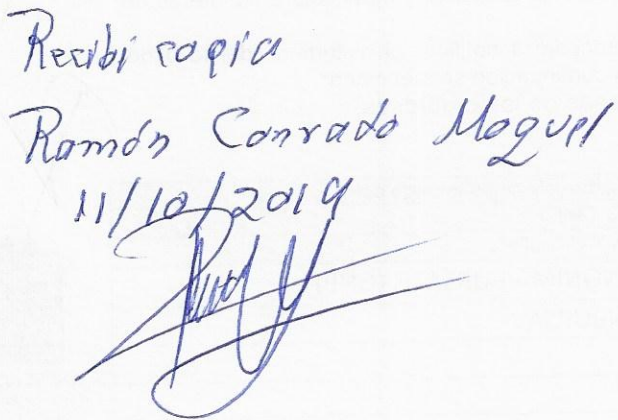 Recibi copia
Ramón Conrado Moguel
11/10/2019